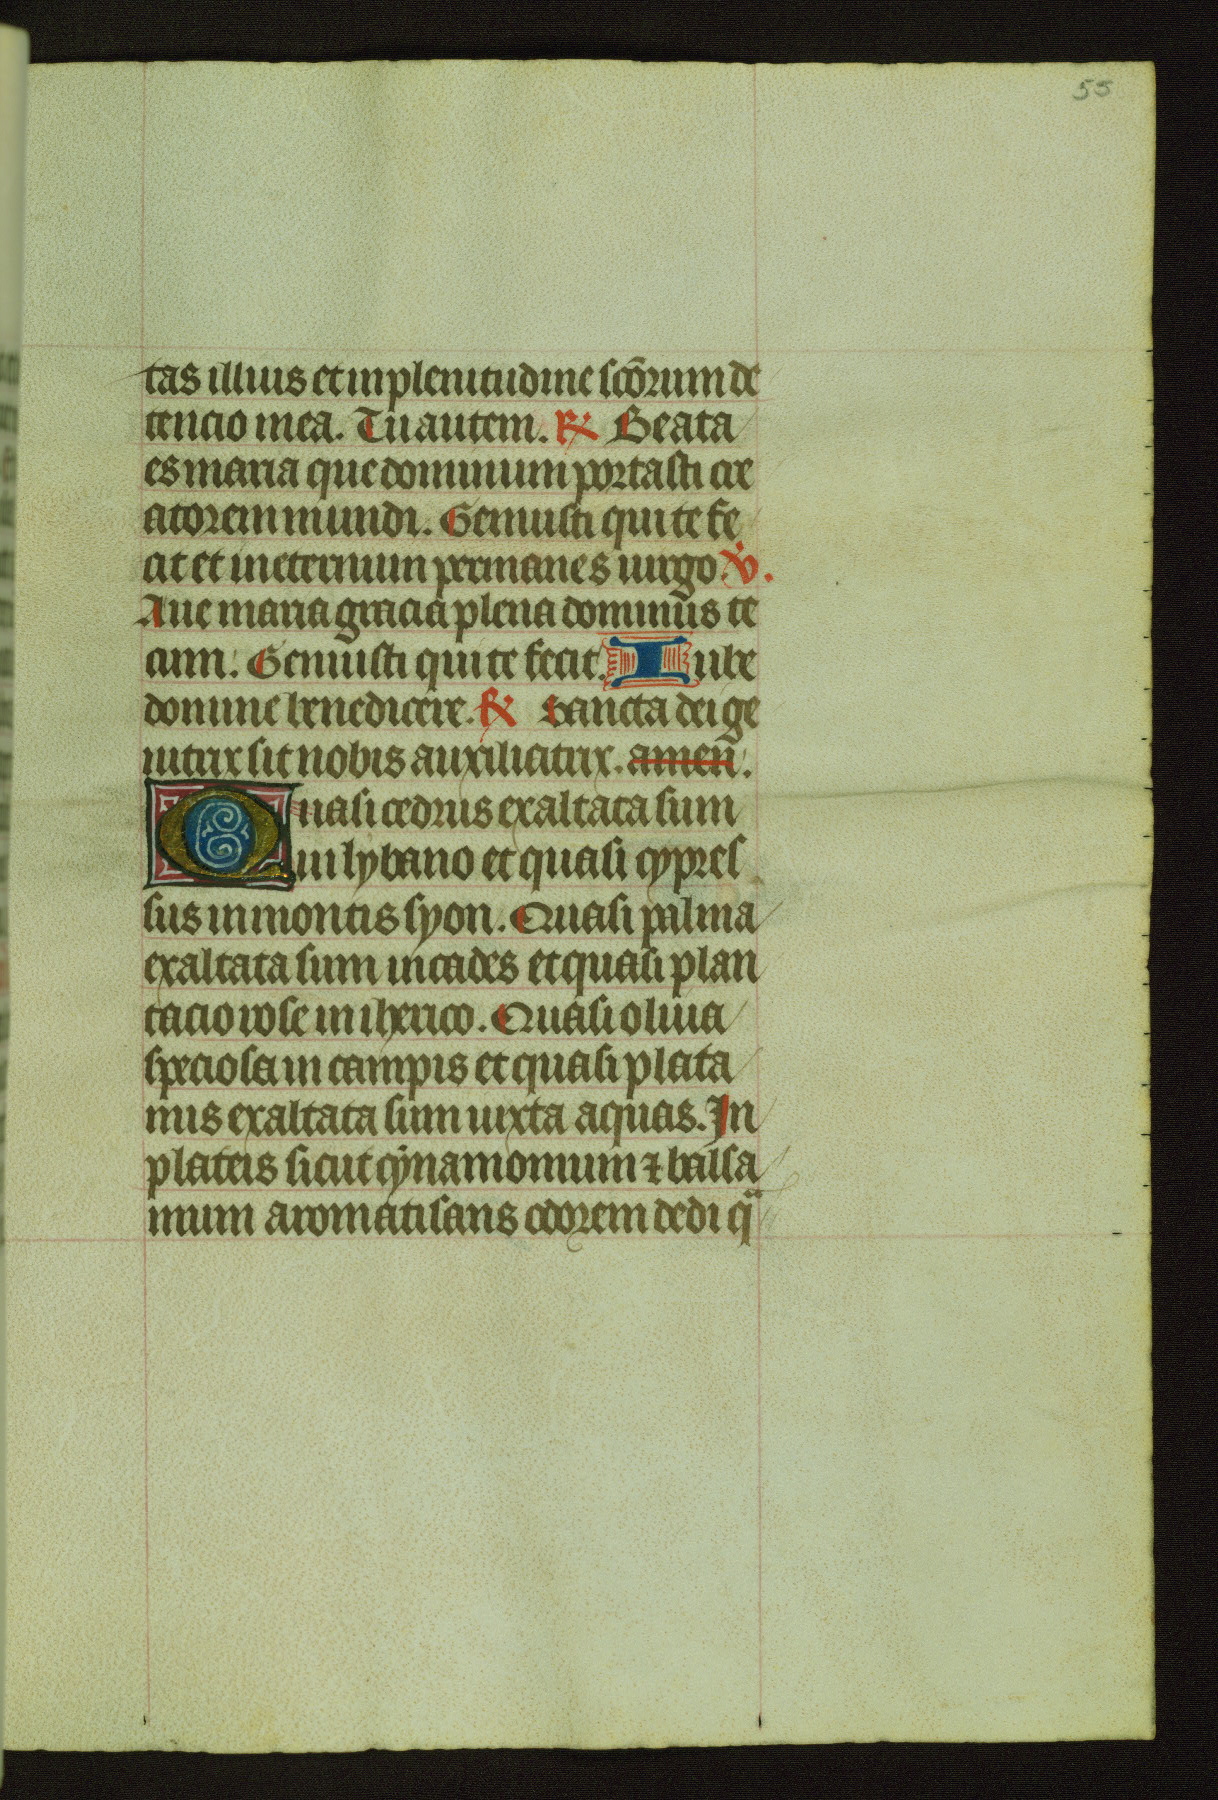 55
tas illius et in plenitudine sc̄orum de
tencio mea. Tu autem. R Beata
es maria que dominum portasti cre
atorem mundi. Genuisti qui te fe
cit et in eternum permanes uirgo. V.
Aue maria gracia plena dominus te
cum. Genuisti qui te fecit. Iube
domine benedicere. R Sancta dei ge
nitrix sit nobis auxilicatrix. amen.
Quasi cedrus exaltata sum
in lybano et quasi cypres
sus in montis syon. Quasi palma
exaltata sum in cades et quasi plan
tacio rose in iherico. Quasi oliua
speciosa in campis et quasi plata
nus exaltata sum iuxta aquas. In
plateis sicut cynamomum ⁊ balsa
mum aromatisans odorem dedi qͣ